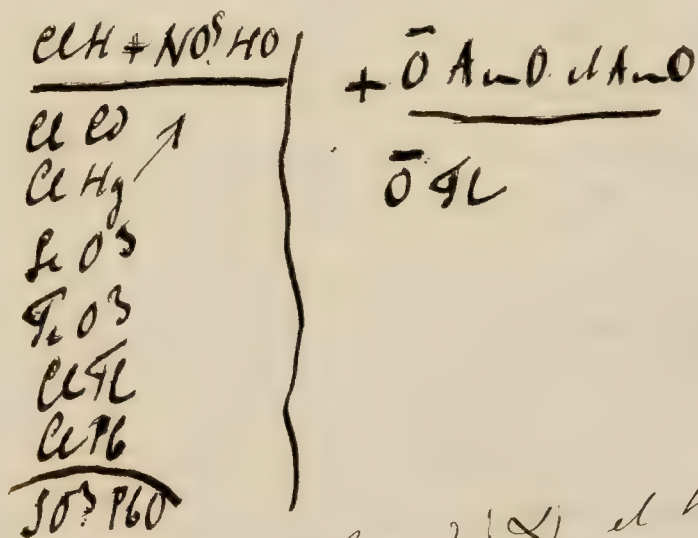 ClH + NO⁵HO
Cl Cd
Cl Hg
Se O³
Te O³
Cl Tl
Cl Pb
SO³ PbO
+ Ō AmO et AmO
Ō Tl
et